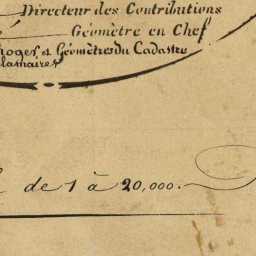 Directeur des Contributions
Géomètre en Chef
et Géomètres du Cadastre
de 1 à 20,000.